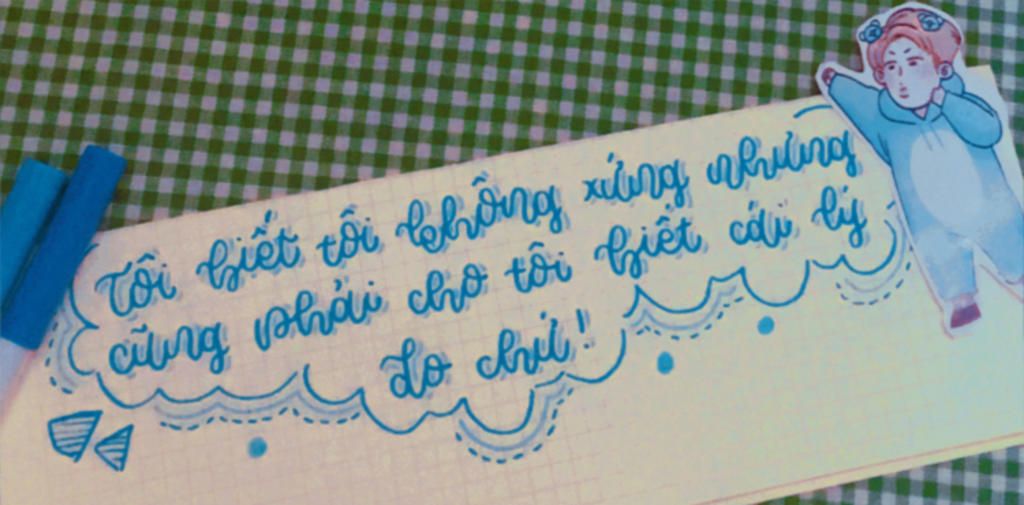 Tôi biết tôi không xứng nhưng
cũng phải cho tôi biết cái lý
do chứ!